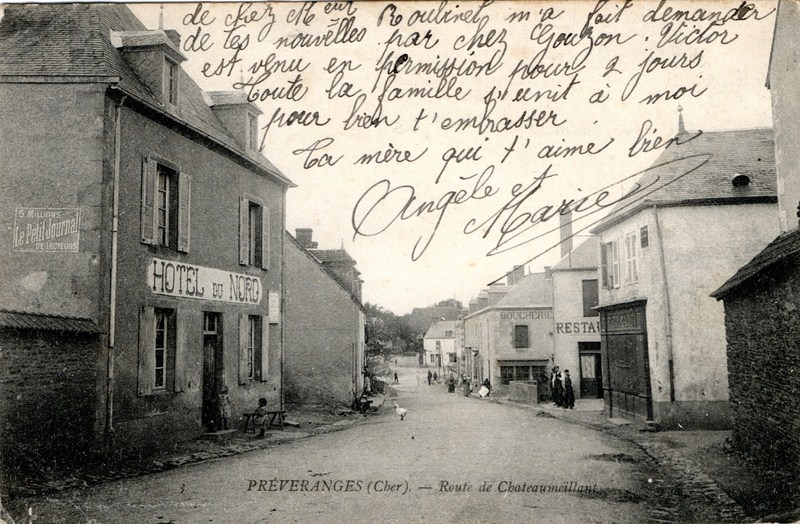 de chez Mr Roulinet m'a fait demander
de tes nouvelles par chez Gouzon. Victor
est venu en permission pour 2 jours
Toute la famille s'unit à moi
pour bien t'embrasser.
Ta mère qui t'aime bien
Angèle et
Marie
5 MILLIONS
Le Petit Journal
DE LECTEURS
HOTEL DU NORD
BOUCHERIE
RESTAU
3 PRÉVERANGES (Cher). — Route de Chateaumeillant